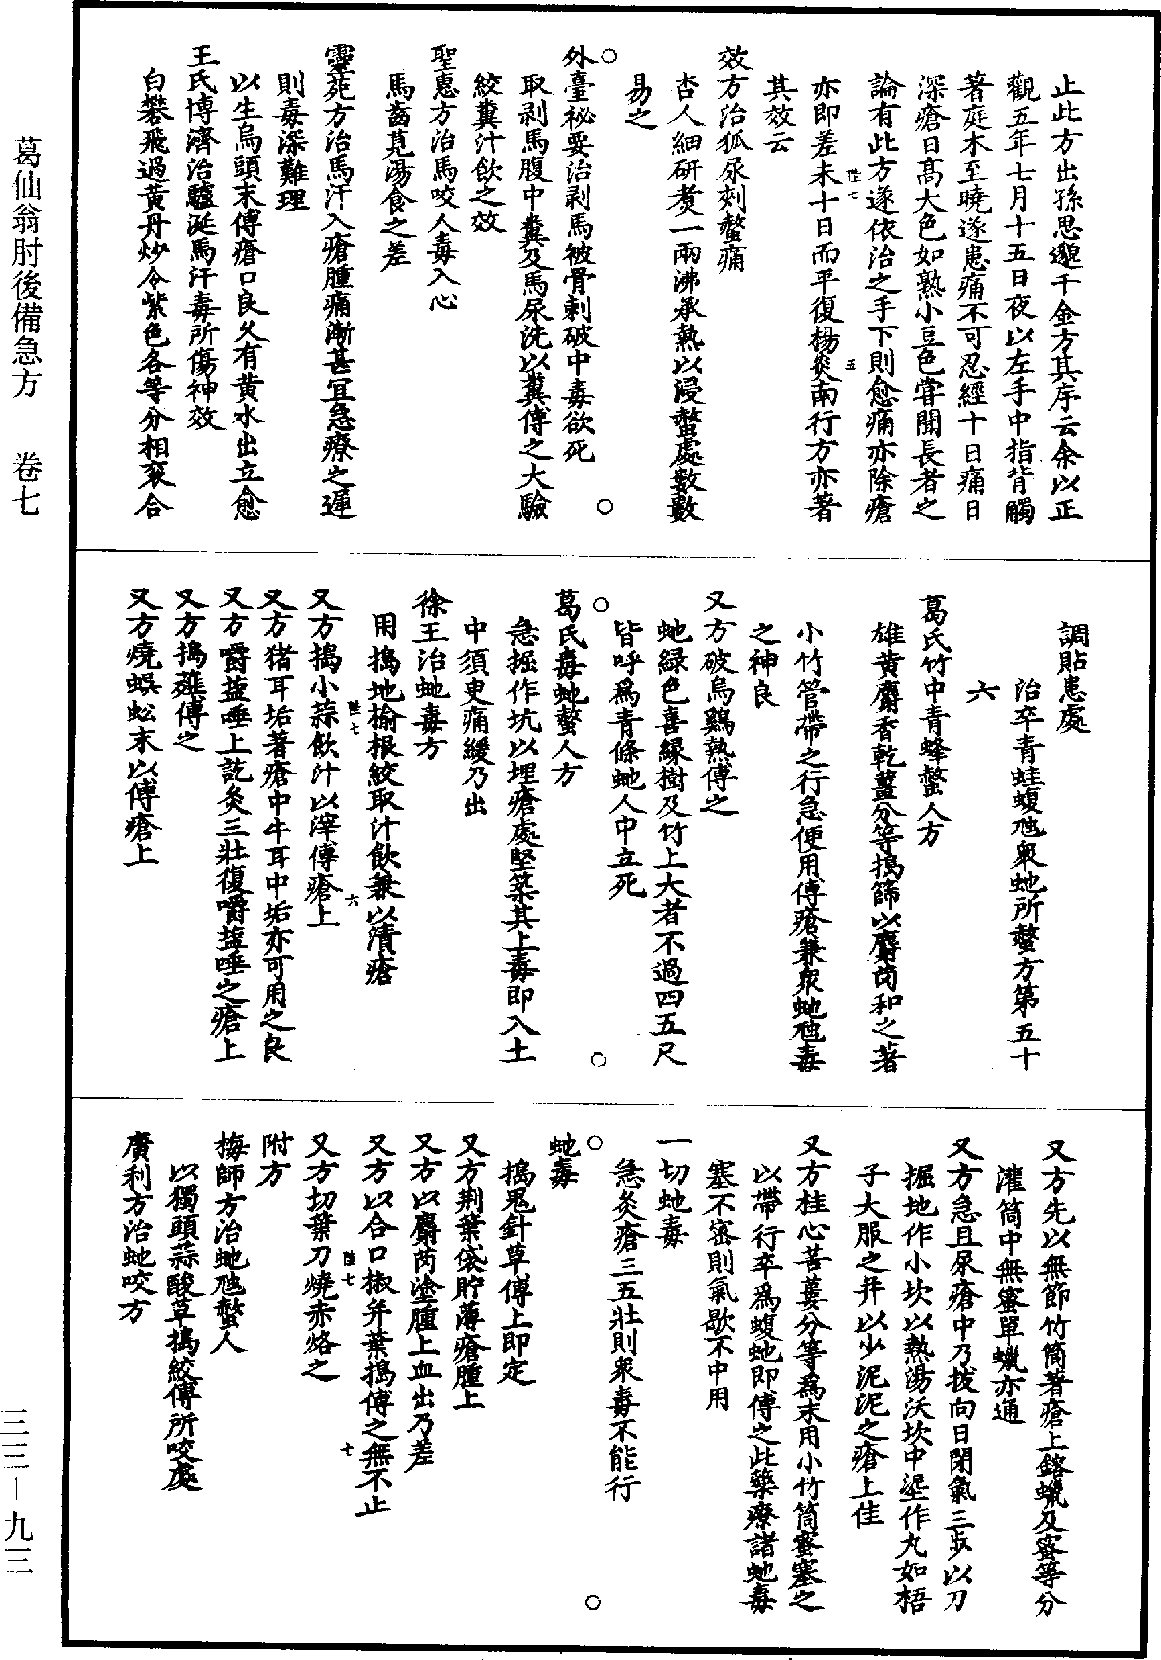 止此方出孫思邈千金方其序云余以正
觀五年七月十五日夜以左手中指背觸
著庭木至曉遂患痛不可忍經十日痛日
深瘡日高大色如熟小豆色嘗聞長者之
論有此方遂依治之手下則愈痛亦除瘡
亦即差未十日而平復楊炎南行方亦著
其效云
效方治狐尿刺螫痛
杏人細研煑一兩沸承熱以浸螫處數數
易之
外臺秘要治剥馬被骨刺破中毒欲死
取剥馬腹中糞及馬尿洗以糞傅之大驗
絞糞汁飲之效
聖惠方治馬咬人毒入心
馬齒莧湯食之差
靈苑方治馬汗入瘡腫痛漸甚冝急療之遲
則毒深難理
以生烏頭末傅瘡口良久有黃水出立愈
王氏博濟治驢涎馬汗毒所傷神效
白礬飛過黃丹炒令紫色各等分相衮合
調貼患處
治卒青蛙蝮虺衆虵所螫方第五十
六
葛氏竹中青蜂螫人方
雄黃麝香乾薑分等搗篩以麝茵和之著
小竹管帶之行急便用傅瘡兼衆虵虺毒
之神良
又方破烏雞熱傅之
虵綠色喜緣樹及竹上大者不過四五尺
皆呼爲青條虵人中立死
葛氏毒虵螫人方
急掘作坑以埋瘡處堅築其上毒即入土
中須臾痛緩乃出
徐王治虵毒方
用搗地榆根絞取汁飲兼以漬瘡
又方搗小蒜飲汁以滓傅瘡上
又方猪耳垢著瘡中牛耳中垢亦可用之良
又方嚼鹽唾上訖灸三壯復嚼鹽唾之瘡上
又方搗薤傅之
又方燒蜈蚣末以傅瘡上
又方先以無節竹筒著瘡上鎔蠟及蜜等分
灌筒中無蜜單蠟亦通
又方急且尿瘡中乃拔向日閉氣三步以刀
掘地作小坎以熱湯沃坎中埿作丸如梧
子大服之并以少泥泥之瘡上佳
又方桂心菩蔞分等爲末用小竹筒蜜塞之
以帶行卒爲蝮虵即傅之此藥療諸虵毒
塞不密則氣歇不中用
一切虵毒
急灸瘡三五壯則衆毒不能行
虵毒
搗鬼針草傅上即定
又方荆葉袋貯薄瘡腫上
又方以麝茵塗腫上血出乃差
又方以合口椒并葉搗傅之無不止
又方切葉刀燒赤烙之
附方
梅師方治虵虺螫人
以獨頭蒜酸草搗絞傅所咬處
廣利方治虵咬方
葛仙翁肘後備急方 卷七
三三－九三
陸七
五
陸七
六
陸七
七